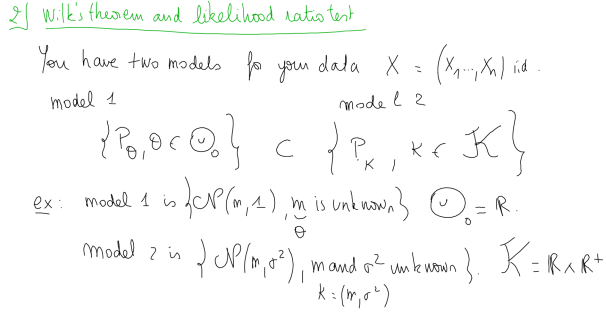 2] Wilk's theorem and likelihood ratio test
You have two models for your data X = (X₁,...,Xₙ) iid.
model 1 model 2
{P_θ, θ ∈ Θ₀} ⊂ {P_κ, κ ∈ K}
ex: model 1 is {N(m,1), m is unknown} Θ₀ = ℝ.
θ
model 2 is {N(m,σ²), m and σ² unknown}. K = ℝ × ℝ⁺
κ = (m,σ²)